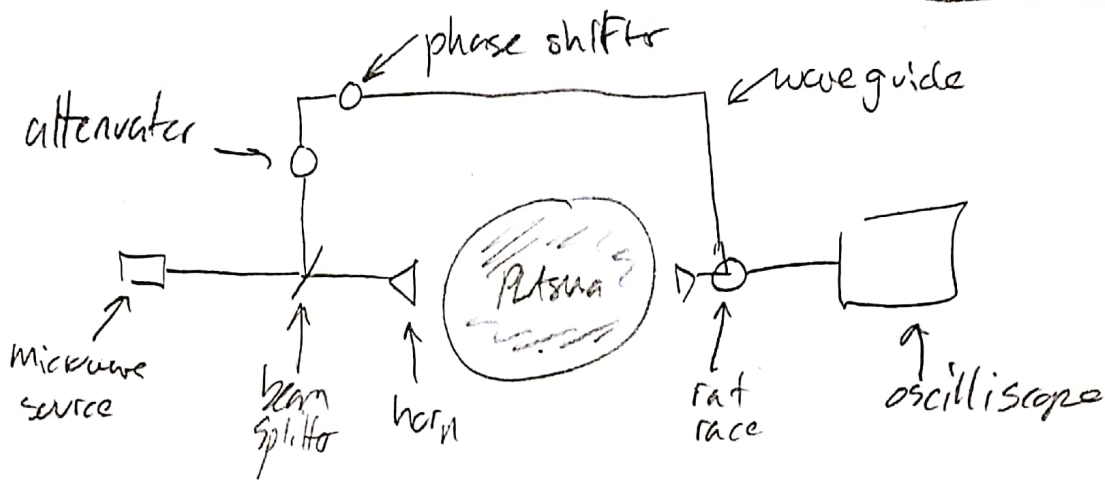 phase shifter
waveguide
attenuater
Plasma
microwave
source
beam
splitter
horn
rat
race
oscilliscope